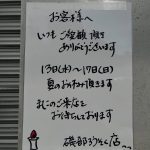 お客様へ
いつもご愛顧頂き
ありがとうございます
13日(水)〜17日(日)
夏のお休み頂きます
またのご来店を
お待ちしております
磯部ろうそく店